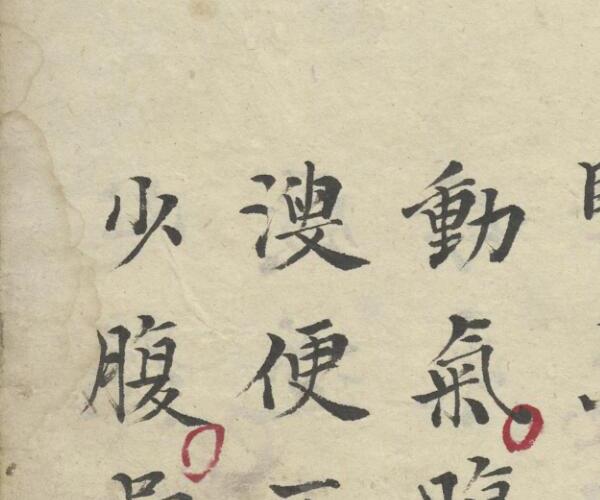 動氣
溲便
少腹